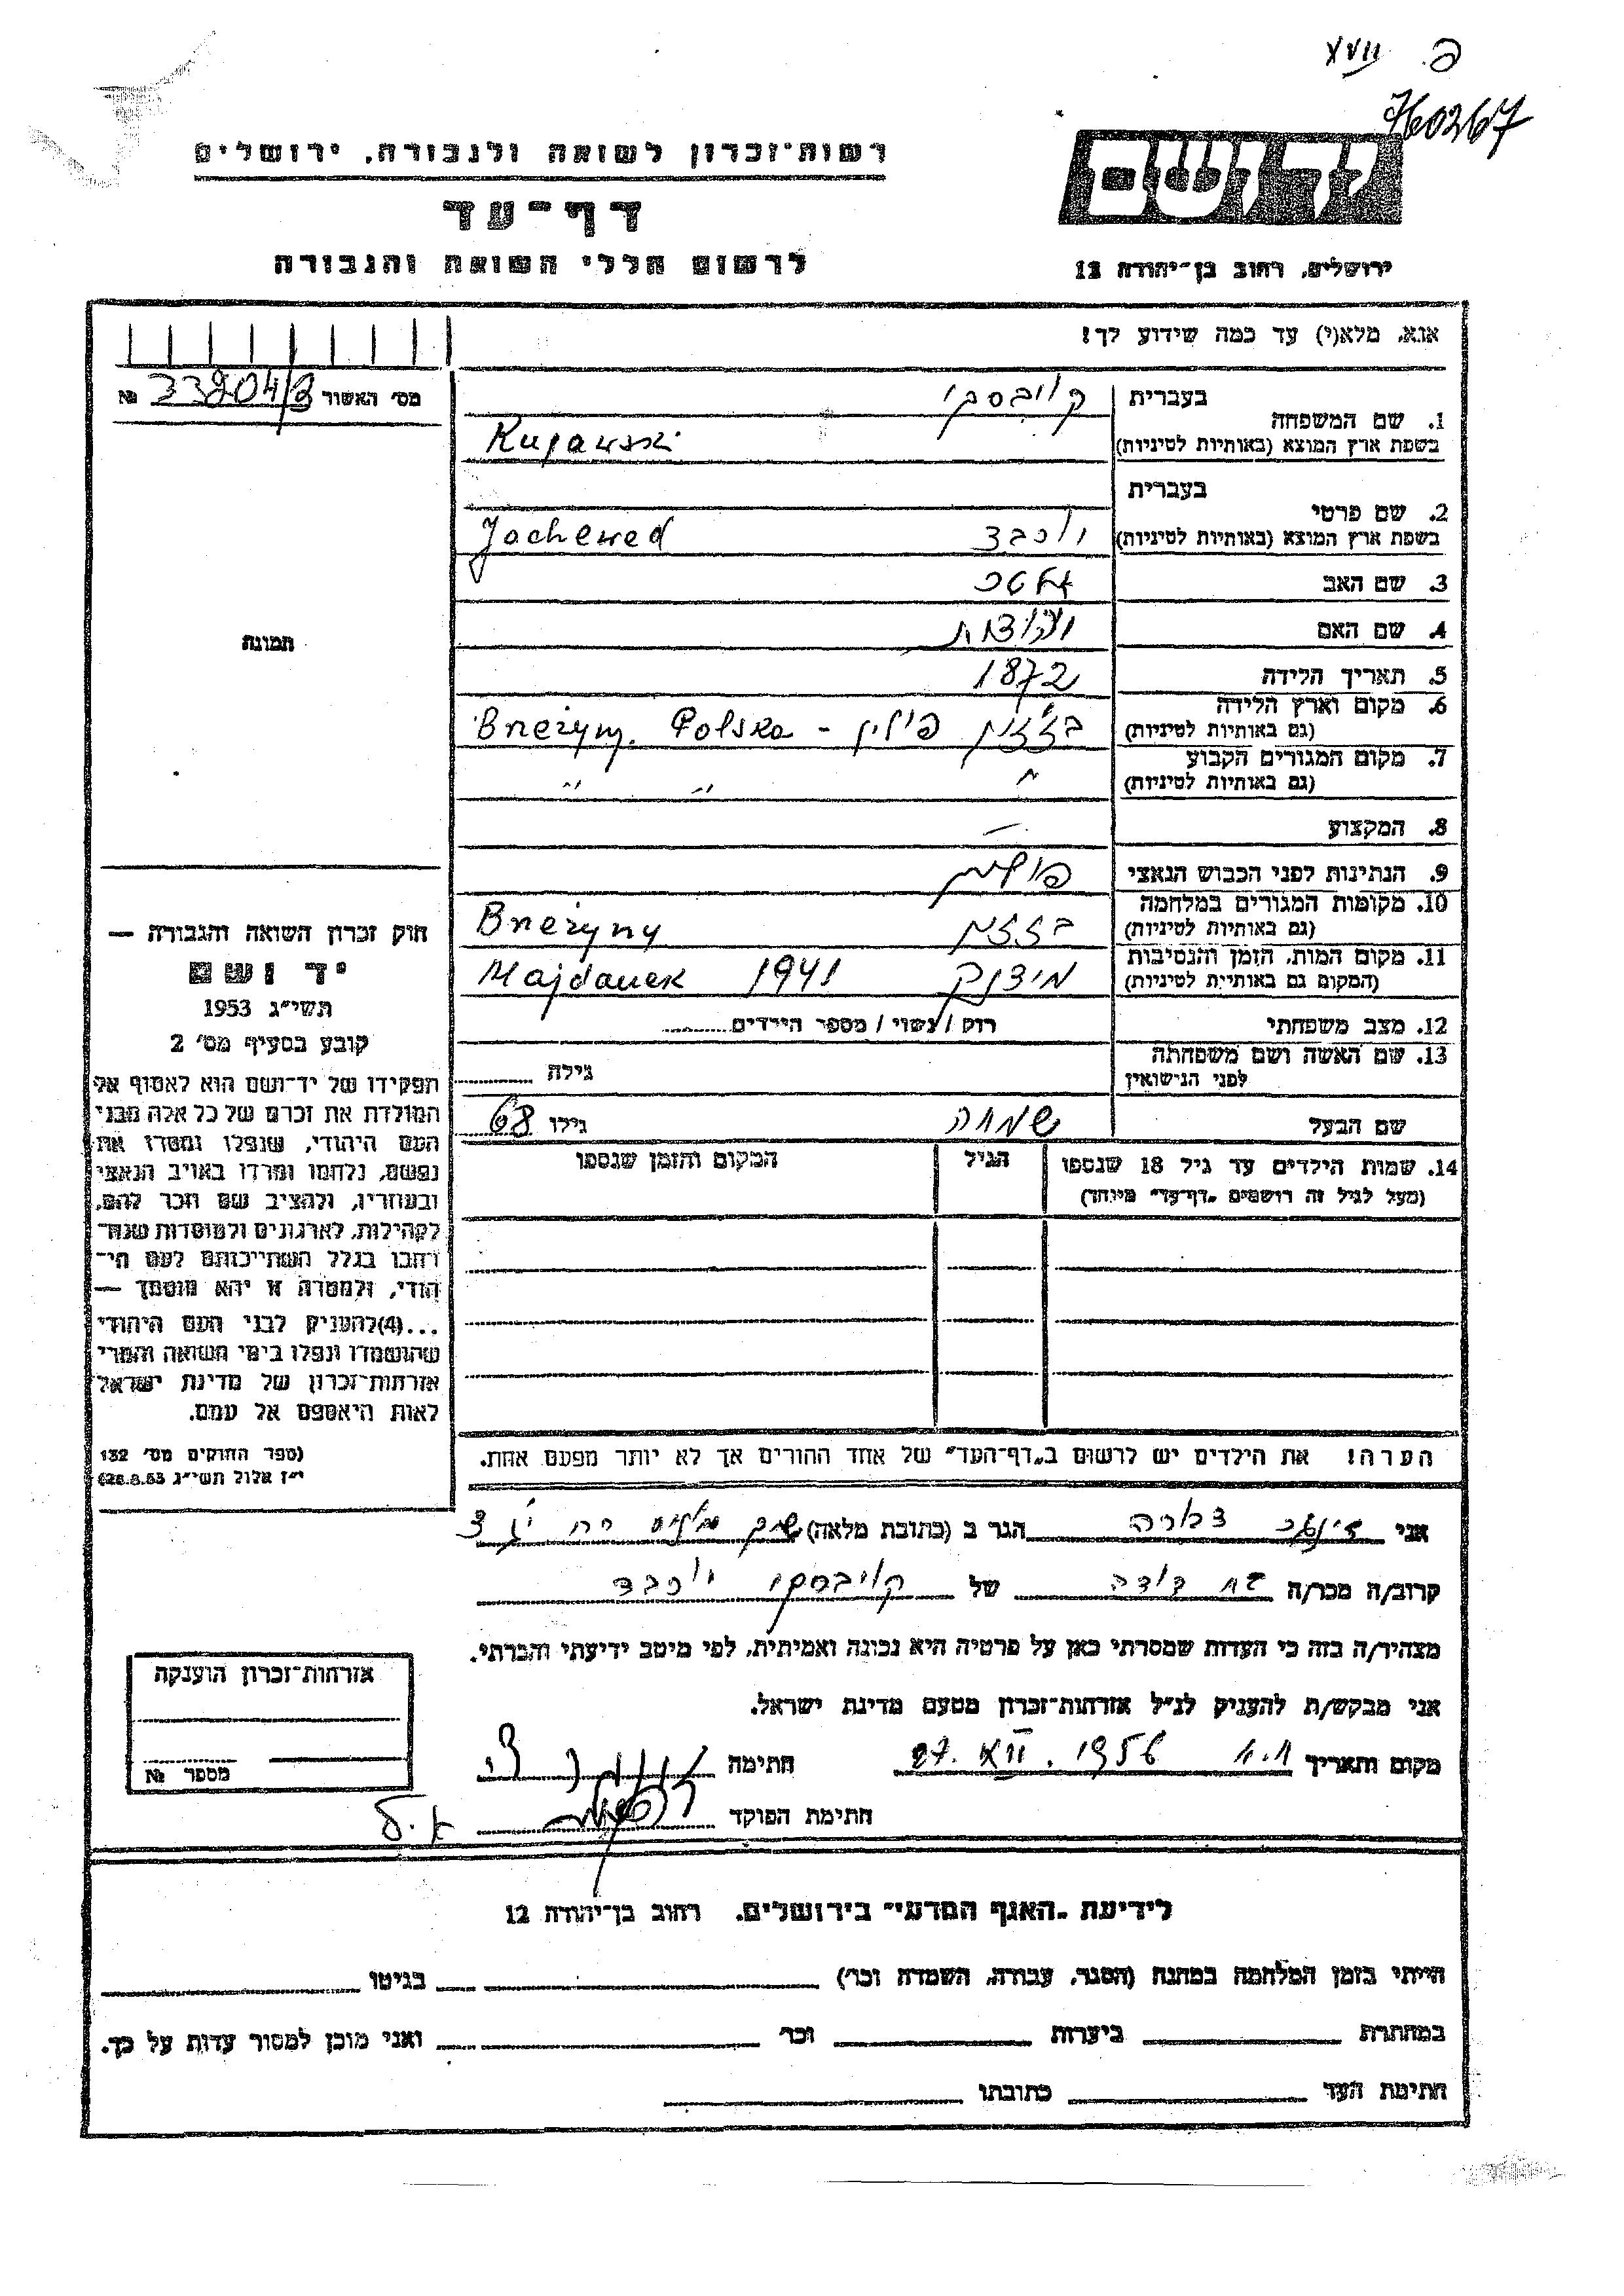 פ. XVII
760267
יד ושם
ירושלים, רחוב בן־יהודה 12
רשות־זכרון לשואה ולגבורה, ירושלים
דף־עד
לרשום חללי השואה והגבורה
אנא, מלא(י) עד כמה שידוע לך!
מס׳ האשור 33204/3 №
1. שם המשפחה בעברית קויבסקי
בשפת ארץ המוצא (באותיות לטיניות) Kujawski
2. שם פרטי בעברית
בשפת ארץ המוצא (באותיות לטיניות) יוכבד Jochewed
3. שם האב
4. שם האם יהודית
5. תאריך הלידה 1872
6. מקום וארץ הלידה
(גם באותיות לטיניות) פולין - Polska
7. מקום המגורים הקבוע
(גם באותיות לטיניות) " " "
8. המקצוע —
9. הנתינות לפני הכבוש הנאצי פולנית
10. מקומות המגורים במלחמה
(גם באותיות לטיניות) Brzeżyny
11. מקום המות, הזמן והנסיבות
(המקום גם באותיות לטיניות) מידנק 1941 Majdanek
12. מצב משפחתי רווק / נשוי / מספר הילדים
13. שם האשה ושם משפחתה
לפני הנישואין גילה
שם הבעל שמחה גילו 68
14. שמות הילדים עד גיל 18 שנספו הגיל המקום והזמן שנספו
(מעל לגיל זה רושמים „דף־עד״ מיוחד)
הערה! את הילדים יש לרשום ב„דף־העד״ של אחד ההורים אך לא יותר מפעם אחת.
תמונה
חוק זכרון השואה והגבורה —
יד ושם
תשי״ג 1953
קובע בסעיף מס׳ 2
תפקידו של יד־ושם הוא לאסוף אל
המולדת את זכרם של כל אלה מבני
העם היהודי, שנפלו ומסרו את
נפשם, נלחמו ומרדו באויב הנאצי
ובעוזריו, ולהציב שם וזכר להם,
לקהילות, לארגונים ולמוסדות שנח־
רבו בגלל השתייכותם לעם הי־
הודי, ולמטרה זו יהא מוסמך —
...(4)להעניק לבני העם היהודי
שהושמדו ונפלו בימי השואה והמרי
אזרחות־זכרון של מדינת ישראל
לאות היאספם אל עמם.
(ספר החוקים מס׳ 132
י״ז אלול תשי״ג 28.8.53)
אני דבורה הגר ב (כתובת מלאה)
קרוב/ה מכר/ה בת דודה של קויבסקי יוכבד
מצהיר/ה בזה כי העדות שמסרתי כאן על פרטיה היא נכונה ואמיתית, לפי מיטב ידיעתי והכרתי.
אני מבקש/ת להעניק לנ״ל אזרחות־זכרון מטעם מדינת ישראל.
מקום ותאריך 27. XII. 1956 חתימה
חתימת הפוקד
אזרחות־זכרון הוענקה
מספר №
לידיעת „האגף המדעי״ בירושלים, רחוב בן־יהודה 12
הייתי בזמן המלחמה במחנה (הסגר, עבודה, השמדה וכו׳) בגיטו
במחתרת ביערות וכו׳ ואני מוכן למסור עדות על כך.
חתימת העד כתובתו